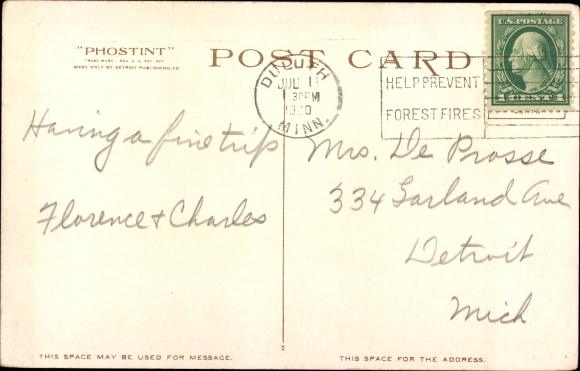 "PHOSTINT"
TRADE MARK - REG. U.S. PAT. OFF.
MADE ONLY BY DETROIT PUBLISHING CO.
POST CARD
DULUTH
JUL 1
130PM
1920
MINN.
HELP PREVENT
FOREST FIRES
U.S. POSTAGE
1 CENT 1
Having a fine trip
Florence & Charles
Mrs. De Prosse
334 Garland Ave
Detroit
Mich
THIS SPACE MAY BE USED FOR MESSAGE.
THIS SPACE FOR THE ADDRESS.